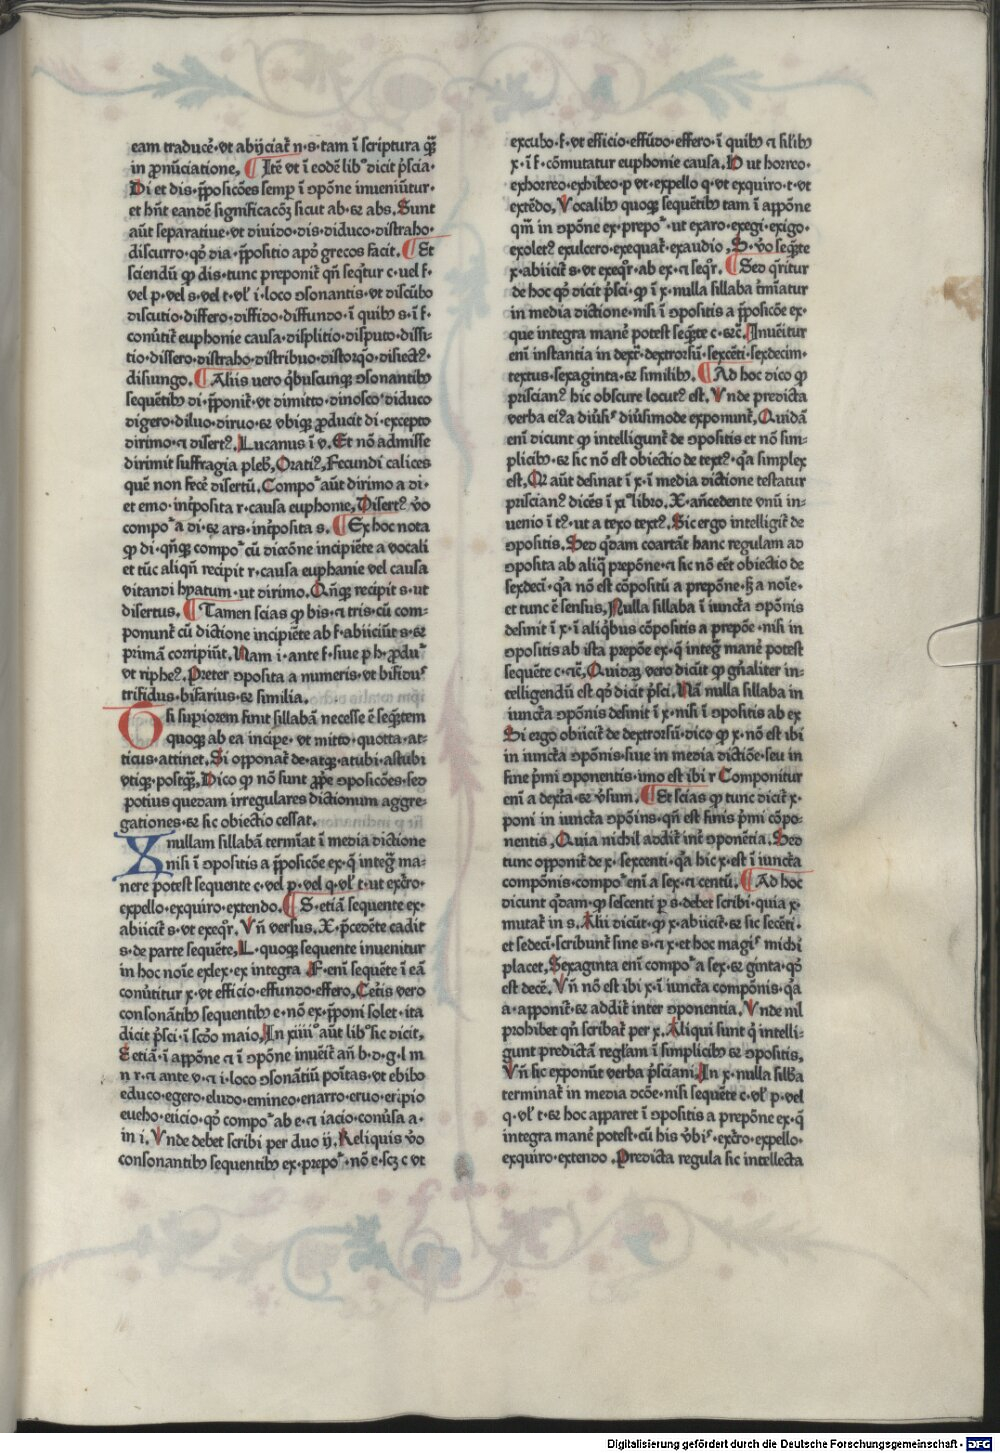 eam traducē·vt abijciat̄ n·s·tam ī scriptura q̄ꝫ
in ꝓnūciatione, ¶ Itē vt ī eodē lib° dicit p̄scia·
Di et dis·p̄posicōes semp̄ ī ꝯpōne inueniūtur·
et hn̄t eandē significacōꝫ sicut ab·⁊ abs, Sunt
aūt separatiue·vt diuido·dis·diduco·distraho·
discurro·qō dia·p̄positio apō grecos facit. ¶ Et
sciendū ꝙ dis·tunc preponit̄ qn̄ seq̄tur c·uel f·
vel p·vel s·vel t·vl̄ i·loco ꝯsonantis·vt discūbo
discutio·differo·diffido·diffundo·ī quibꝰ s·ī f·
conūtit̄ euphonie causa·displitio·disputo·dissi-
tio·dissero·distraho·distribuo·distorq̄o·disiectꝰ·
disiungo. ¶ Aliis uero q̄buscunqꝫ ꝯsonantibꝰ
sequētibꝰ di·p̄ponit̄·vt dimitto·dinosco·diduco
digero·diluo·diruo·⁊ vbiqꝫ ꝓducit di·excepto
dirimo·⁊ disertꝰ. Lucanus ī v. Et nō admisse
dirimit suffragia pleb̄, Oratiꝰ, Fecundi calices
quē non fecē disertū, Compo° aūt dirimo a di·
et emo·int̄posita r·causa euphonie, Disertꝰ v̄o
compo° a di·⁊ ars·int̄posita s. ¶ Ex hoc nota
ꝙ di·qn̄qꝫ compo° cū dicc̄one incipiēte a vocali
et tūc aliqn̄ recipit r·causa euphanie vel causa
vitandi hyatum·ut dirimo. Qn̄qꝫ recipit s·ut
disertus. ¶ Tamen scias ꝙ bis·⁊ tris·cū com-
ponunt̄ cū dictione incipiēte ab f·abiiciūt s·⁊
primā corripiūt. Nam i·ante f·siue p h·ꝓdu°
vt ripheꝰ. Preter ꝯposita a numeris·vt bifiduˢ
trifidus·bifarius·⁊ similia.
T si supiorem finit sillabā necesse ē seq̄ntem
quoqꝫ ab ea incipe·vt mitto·quotta·at-
ticus·attinet. Si opponat̄ de·atqꝫ·atubi·astubi
vtiqꝫ·postq̄ꝫ, Dico ꝙ nō sunt ꝓp̄e ꝯposicōes·sed
potius quedam irregulares dictionum aggre-
gationes·⁊ sic obiectio cessat.
X nullam sillabā termīat ī media dictione
nisi ī ꝯpositis a p̄posicōe ex·q̄ inteḡ ma-
nere potest sequente c·vel p·vel q·vl̄ t·ut excr̄o·
expello·exquiro·extendo. ¶ S·etiā sequente ex·
abiicit s·vt exeqr̄. Vn̄ versus. X·p̄cedēte cadit
s·de parte sequēte, L·quoqꝫ sequente inuenitur
in hoc noīe exlex·ex integra F·enī sequēte ī eā
conūtitur x·vt efficio·effundo·effero, Cet̄is vero
consonātibꝰ sequentibꝰ e·nō ex·p̄poni solet·ita
dicit p̄sci·ī scd̄o maio, In xiiii° aūt lib° sic dicit,
E etiā·ī appōne ⁊ ī ꝯpōne inuēit̄ an̄ b·d·g·l m
n r·⁊ ante v·⁊ i·loco ꝯsonātiū poītas·vt ebibo
educo·egero·eludo·emineo·enarro·eruo·eripio
eueho·eiicio·qō compo° ab e·⁊ iacio·conūsa a·
in i. Vnde debet scribi per duo ij, Reliquis v̄o
consonantibꝰ sequentibꝰ ex·prepo°·nō e·scꝫ c vt
excubo·f·vt efficio·effūdo·effero·ī quibꝰ ⁊ sil̄ibꝰ
x·ī f·cōmutatur euphonie causa. H ut horreo·
exhorreo·exhibeo·p vt·expello q·vt exquiro·t·vt
extēdo, Vocalibꝰ quoqꝫ sequētibꝰ tam ī appōne
qm̄ in ꝯpōne ex·prepo°·ut exaro·exegi·exigo·
exoletꝰ exulcero·exequat̄·exaudio, S·v̄o seq̄nte
x·abiicit̄ s·vt exeqr̄·ab ex·⁊ seqr̄. ¶ Sed q̄ritur
de hoc qō dicit p̄sci·ꝙ ī x·nulla sillaba t̄minatur
in media dictione·nisi ī ꝯpositis a p̄posicōe ex·
que integra manē potest seq̄nte c·⁊c̄. Inuēitur
enī instantia in dextꝰ·dextrorsū·sexcēti·sexdecim·
textus·sexaginta·⁊ similibꝰ. ¶ Ad hoc dico ꝙ
priscianꝰ hic obscure locutꝰ est. Vnde predicta
verba eiꝰ a diūsiˢ diūsimode exponunt̄, Quidā
enī dicunt ꝙ intelligunt̄ de ꝯpositis et nō sim-
plicibꝰ·⁊ sic nō est obiectio de textꝰ·q̄a simplex
est, Qr̄ aūt desinat ī x·ī media dictione testatur
priscianꝰ dicēs ī xi° libro. X·an̄cedente vnū in-
uenio ī tꝰ·ut a texo textꝰ. Sic ergo intelligit̄ de
ꝯpositis. Sed q̄dam coartāt hanc regulam ad
ꝯposita ab aliq̄ prepōne·⁊ sic nō eēt obiectio de
sexdecī·q̄a nō est cōpositū a prepōne·s̄ a noīe·
et tunc ē sensus, Nulla sillaba ī iuncta ꝯpōnis
desinit ī x·ī aliq̄bus cōpositis a prepōe·nisi in
ꝯpositis ab ista prepōe ex·q̄ inteḡ manē potest
sequēte c·⁊c̄, Quidaꝫ vero dicūt ꝙ gn̄aliter in-
telligendū est qō dicit p̄sci, Nā nulla sillaba in
iuncta ꝯpōnis desinit ī x·nisi ī ꝯpositis ab ex
Si ergo obiicit̄ de dextrorsū·dico ꝙ x·nō est ibi
in iuncta ꝯpōnis·siue in media dictiōe·seu in
fine p̄mi ꝯponentis·imo est ibi r Componitur
enī a dextra·⁊ v̄sum. ¶ Et scias ꝙ tunc dicit̄ x·
poni in iuncta ꝯpōins·qn̄ est finis p̄mi cōpo-
nentis, Quia nichil addit̄ int̄ ꝯponētia, Sed
tunc opponit̄ de x·sexcenti·q̄a hic x·est ī iuncta
compōnis·compo° enī a sex·⁊ centū. ¶ Ad hoc
dicunt q̄dam·ꝙ sescenti per s·debet scribi·quia x·
mutat̄ in s. Alii dicūt·ꝙ x·abiicit̄·⁊ sic secēti·
et sedecī·scribunt̄ sine s·⁊ x·et hoc magiˢ michi
placet, Sexaginta enī compo° a sex·⁊ ginta·qō
est decē. Vn̄ nō est ibi x·ī iuncta compōnis·q̄a
a·apponit̄·⁊ addit̄ inter ꝯponentia, Vnde nil
prohibet qn̄ scribat̄ per x. Aliqui sunt q̄ intelli-
gunt predictā regl̄am ī simplicibꝰ ⁊ ꝯpositis,
Vn̄ sic exponūt verba p̄sciani. In x·nulla sill̄ba
terminat̄ in media dcōe·nisi sequēte c·vl̄ p·vel
q·vl̄ t·⁊ hoc apparet ī ꝯpositis a prepōne ex·q̄
integra manē potest·cū his v̄biˢ·excr̄o·expello·
exquiro·extendo. Predicta regula sic intellecta
Digitalisierung gefördert durch die Deutsche Forschungsgemeinschaft - DFG